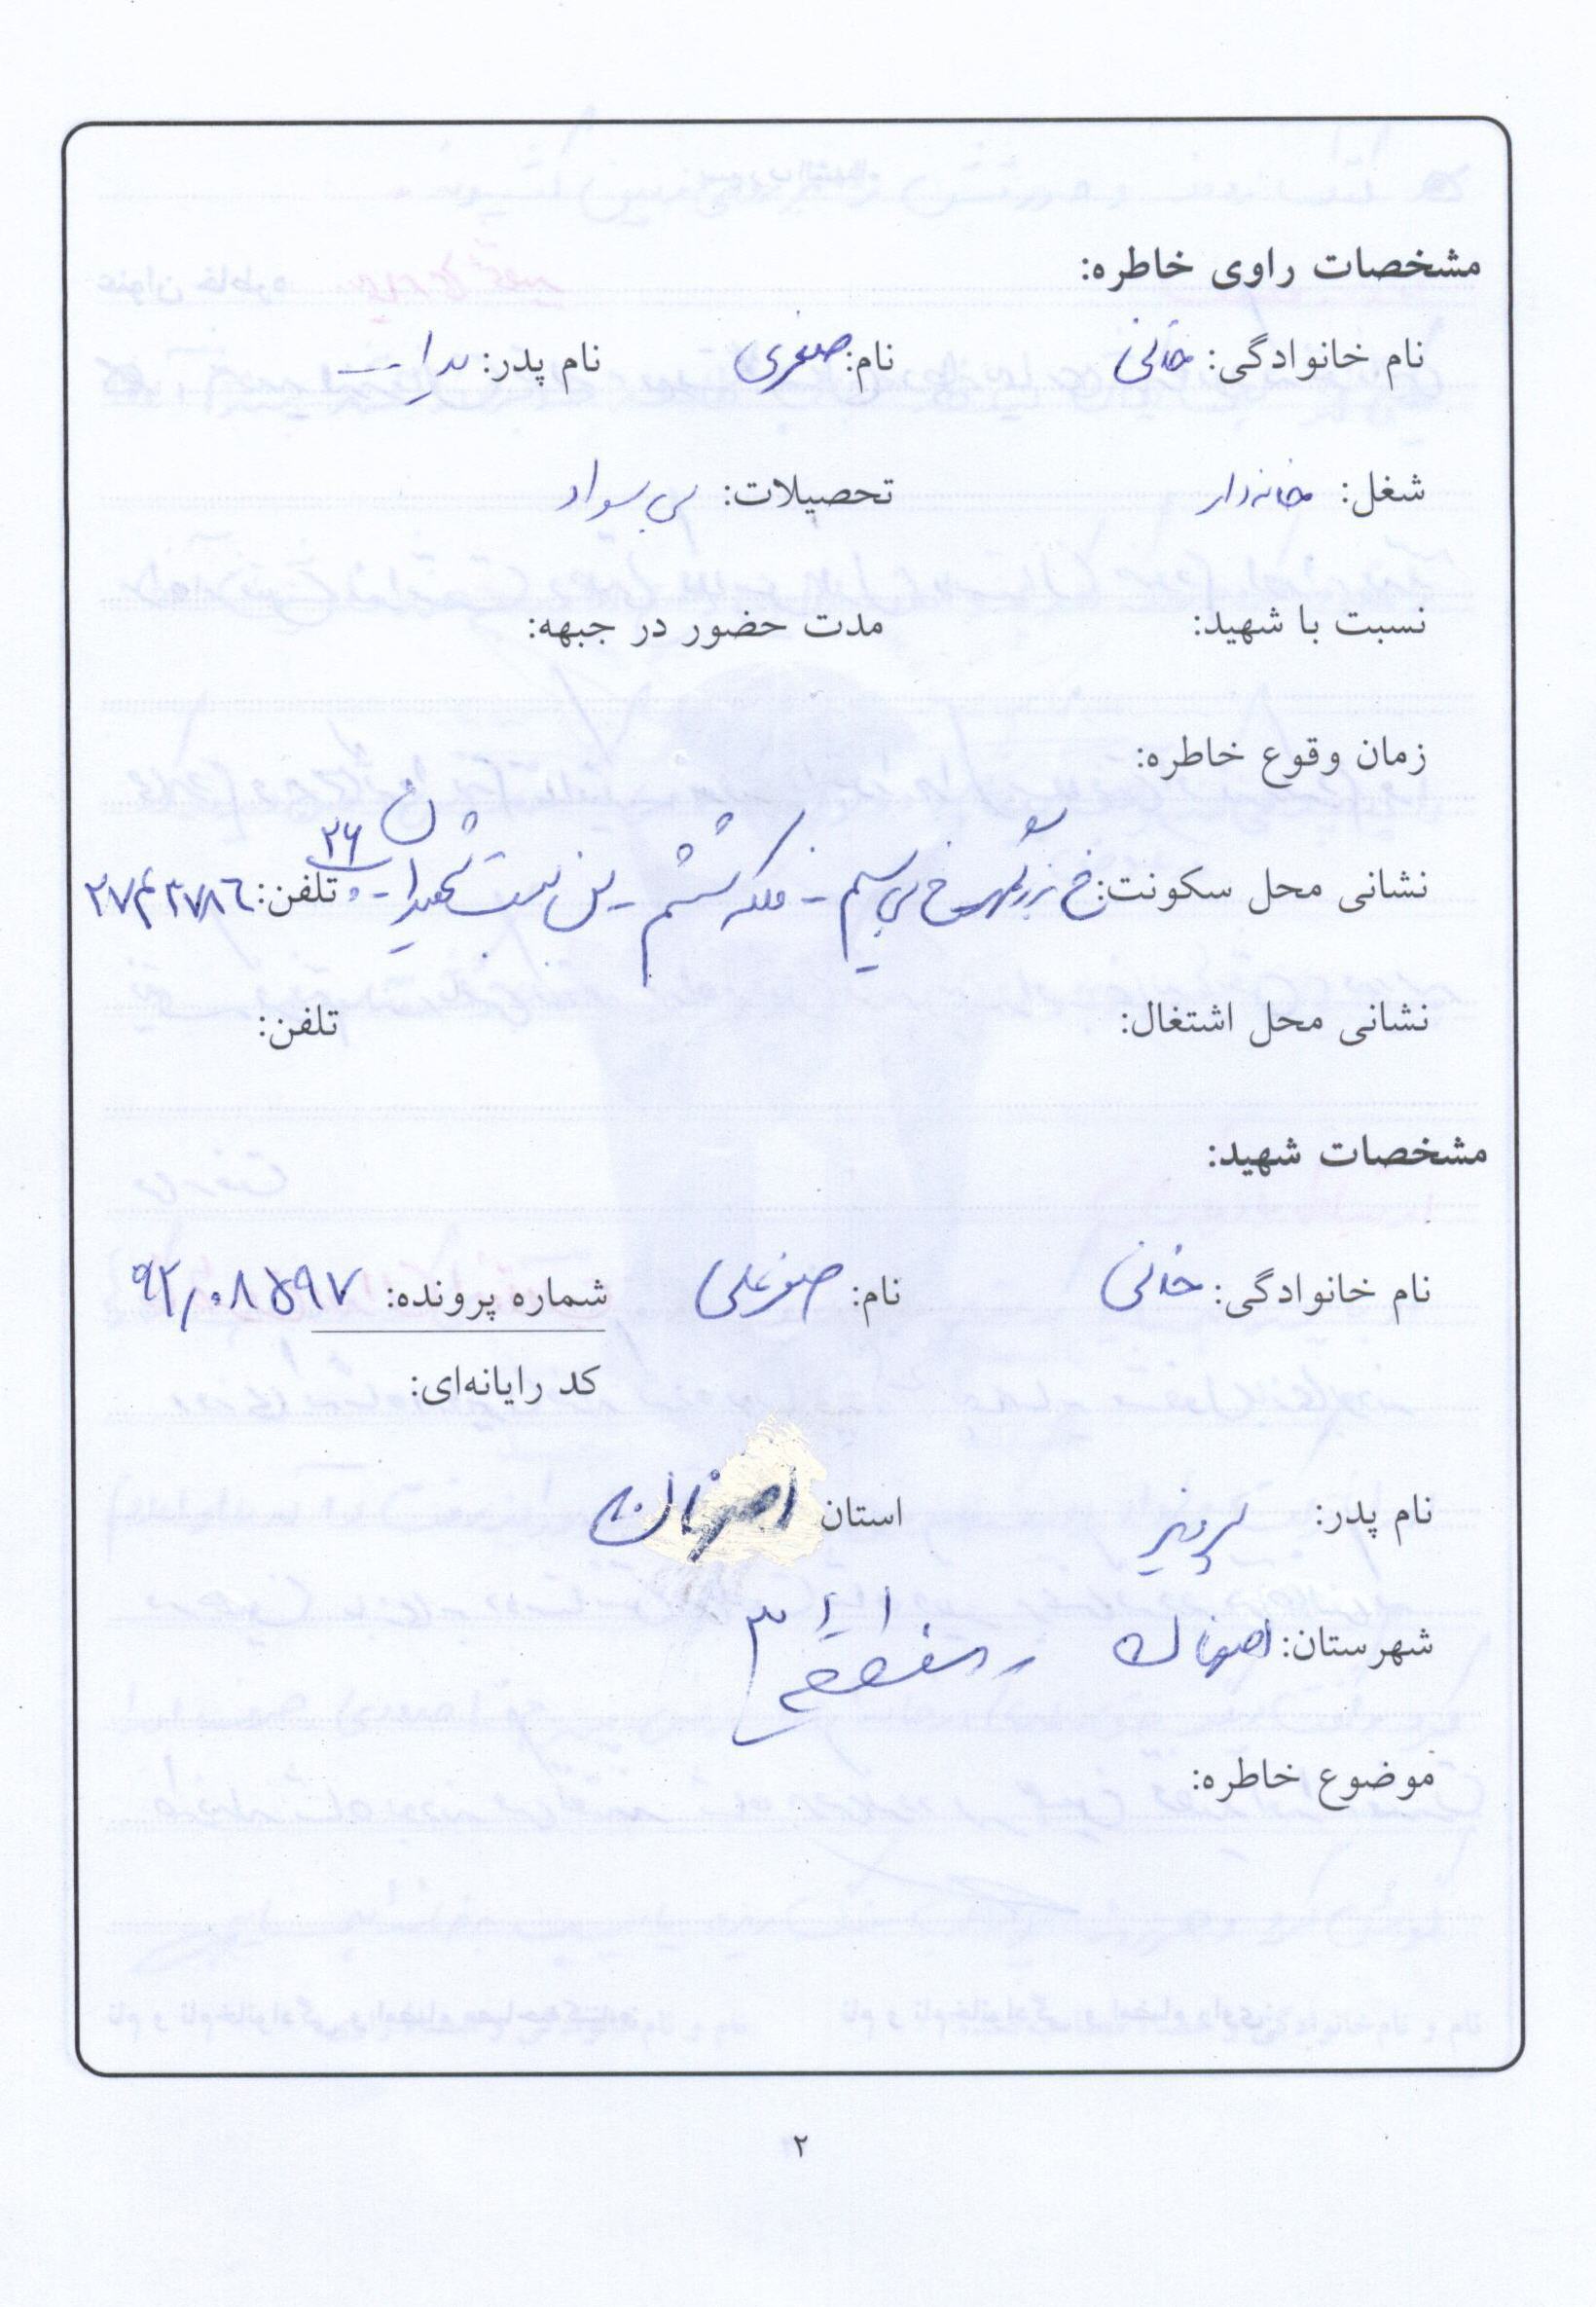 مشخصات راوی خاطره:
نام خانوادگی: خانی نام: صغری نام پدر:
شغل: خانه‌دار تحصیلات: بی سواد
نسبت با شهید: مدت حضور در جبهه:
زمان وقوع خاطره:
نشانی محل سکونت: خ بزرگمهر خ بی سیم - فلکه ششم - بن بست شهید تلفن:
نشانی محل اشتغال: تلفن:
مشخصات شهید:
نام خانوادگی: خانی نام: صفرعلی شماره پرونده:
کد رایانه‌ای:
نام پدر: پرویز استان اصفهان
شهرستان: اصفهان - منطقه ۳
موضوع خاطره:
۲